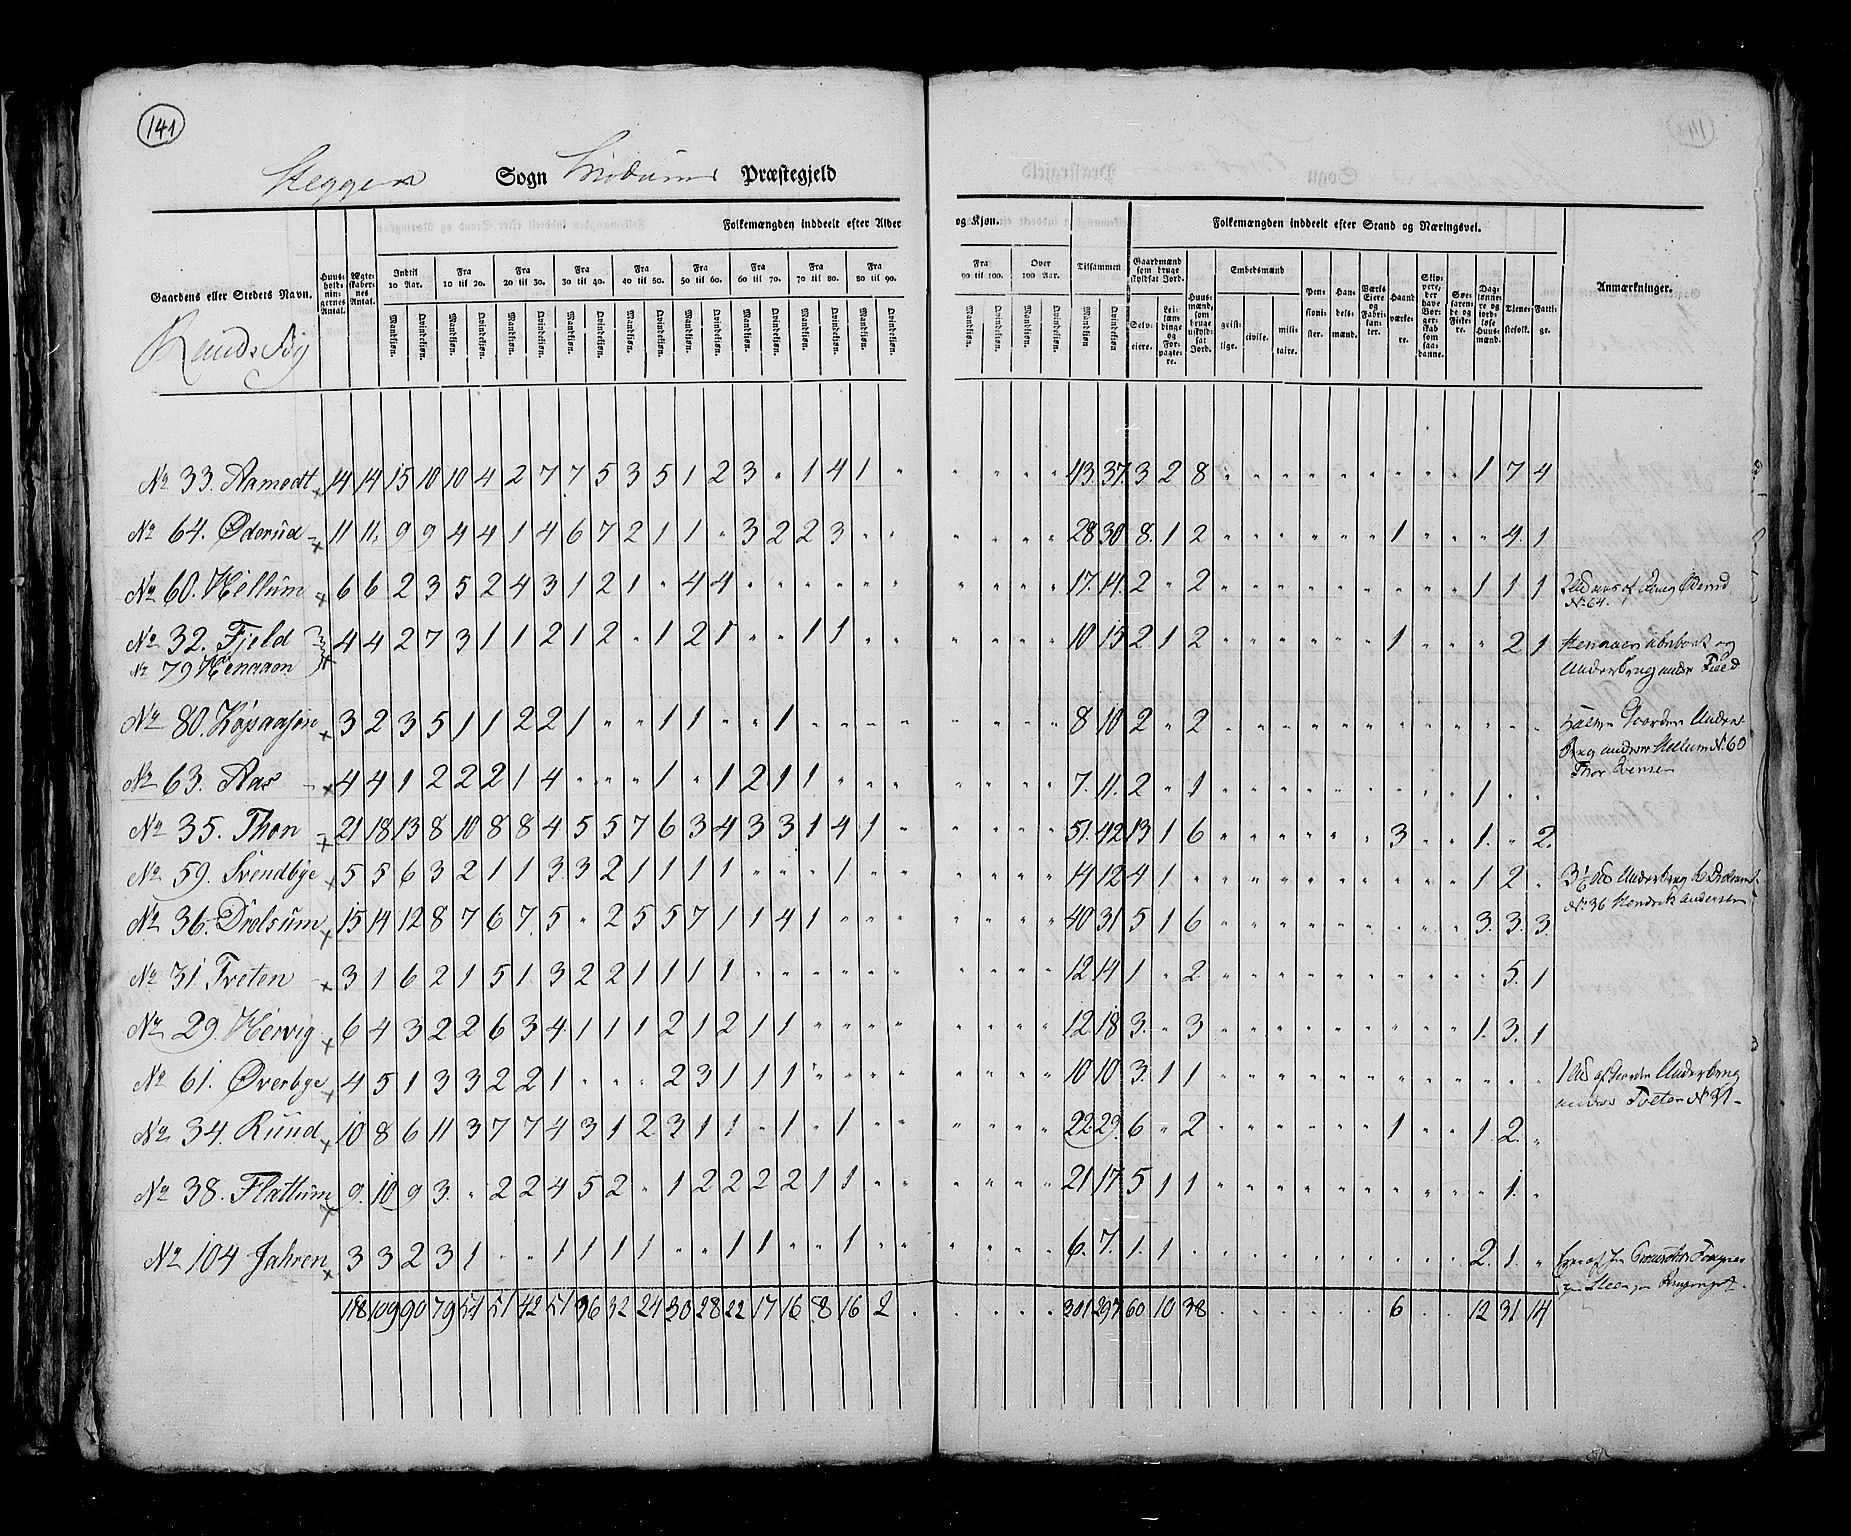 141
Heggens Sogn Modums Præstegjeld
Folkemængden inddeelt efter Alder og Kjøn.
Folkemængden inddeelt efter Stand og Næringsvei.
Gaardens eller Stedets Navn.
Huus-holdnin-gernes Antal.
Ægte-skaber-nes Antal.
Indtil 10 Aar.
Fra 10 til 20.
Fra 20 til 30.
Fra 30 til 40.
Fra 40 til 50.
Fra 50 til 60.
Fra 60 til 70.
Fra 70 til 80.
Fra 80 til 90.
Fra 90 til 100.
Over 100 Aar.
Tilsammen
Gaardmænd som bruge skyldsat Jord.
Embedsmænd
Anmærkninger.
Mandkjøn. Qvindekjøn. Mandkjøn. Qvindekjøn. Mandkjøn. Qvindekjøn. Mandkjøn. Qvindekjøn. Mandkjøn. Qvindekjøn. Mandkjøn. Qvindekjøn. Mandkjøn. Qvindekjøn. Mandkjøn. Qvindekjøn. Mandkjøn. Qvindekjøn. Mandkjøn. Qvindekjøn. Mandkjøn. Qvindekjøn. Mandkjøn Qvindekjøn
Selv-eiere. Lei-lændinge og For-pagte-re. Huus-mænd, som bruge uskyld-sat Jord. geist-lige. civile. mili-taire. Pen-sioni-ster. Han-dels-mænd. Værks Eiere og Fabri-kan-ter. Haand værke-re. Skip-pere, der have Bor-ger-skab som saa-danne. Søe-faren-de og Fiske-re. Dag-lønne-re og jord-løse Huus-mænd. Tjene-stefolk. Fatti-ge.
№ 33. Aamodt 14 14 15 10 10 4 2 7 7 5 3 5 1 2 3 " 1 4 1 " " " " " 43. 37. 3 2 8 " " " " " " " " " 1 7 4
№ 64. Øderud 11 11 9 9 4 4 1 4 6 7 2 1 1 " 3 2 2 3 " " " " " " 28 30 8. 1 2 " " " " " " 1 " " " 4. 1
№ 60. Hellum 6 6 2 3 5 2 4 3 1 2 1 " 4 4 " " " " " " " " " " 17. 14. 2 " 2 " " " " " " " " " 1 1 1
№ 64.
№ 32. Fjeld 4 4 2 7 3 1 1 2 1 2 " 1 2 1 " " 1 1 " " " " " " 10 15 2 1 2 " " " " " " 1 " " " 2 1
№ 79 Henaaen
№ 80. Kopaasen 3 2 3 5 1 1 2 2 1 " " 1 1 " " 1 " " " " " " " " 8 10 2 " 2 " " " " " " " " " " " "
Hellum № 60
№ 63. Aas 4 4 1 2 2 2 1 4 " " " 1 " 1 2 1 1 " " " " " " " 7. 11. 2 " 1 " " " " " " " " " 1 " "
№ 35. Thon 21 18 13 8 10 8 8 4 5 5 7 6 3 4 3 3 1 4 1 " " " " " 51. 42 13 1 6 " " " " " " 3 " " 1. " 2.
№ 59. Svendbye 5 5 6 3 2 1 1 3 3 2 1 1 1 1 " " " 1 " " " " " " 14 12 4 1 " " " " " " " " " " 1 2 "
№ 36. Drolsum 15 14 12 8 7 6 7 5 " 2 5 5 7 1 1 4 1 " " " " " " " 40 31 5 1 6 " " " " " " " " " 3. 3. 3.
№ 36 Hendrik Andersen
№ 31. Tveten 3 1 6 2 1 5 1 3 2 2 1 1 1 1 " " " " " " " " " " 12 14 1 " 2 " " " " " " " " " " 5. 1
№ 29. Hervig 6 4 3 2 2 6 3 4 1 1 1 2 1 2 1 1 " " " " " " " " 12. 18 3. " 3 " " " " " " " " " 1. 3. 1
№ 61. Øverbye 4 5 1 3 3 2 2 1 " " " 2 3 1 1 1 " " " " " " " " 10 10 3. 1 1 " " " " " " " " " " " "
Tveten № 31
№ 34. Rund 10 8 6 11 3 7 7 4 3 1 2 3 1 1 " 1 " 1 " " " " " " 22 29. 6 " 2 " " " " " " 1 " " 1 2. "
№ 38. Flattum 9. 10 9 3. " 2 2 4 5 2 " 1 2 2 2 2 1 1 " " " " " " 21 17 5 1 1 " " " " " " " " " " 1. "
№ 104 Jahren 3 3 2 3 1 " " 1 1 1 1 " " 1 1 " " 1 " " " " " " 6. 7. 1. 1 " " " " " " " " " " 2. 1. "
118 109 90 79 54 51 42 51 36 32 24 30 28 22 17 16 8 16 2 " " " " " 301 297 60 10 38 " " " " " " 6 " " 12 31 14